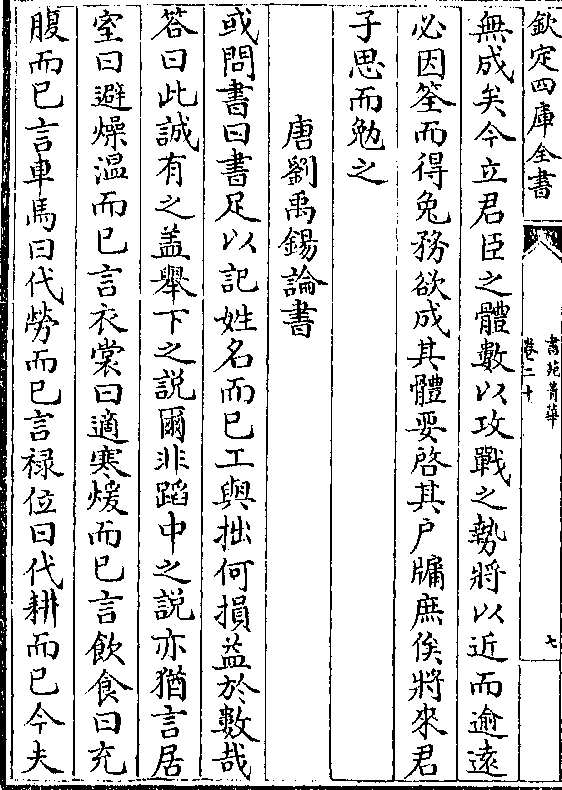 欽定四庫全書
書苑菁華
卷二十
七
無成矣今立君臣之體數以攻戰之勢將以近而逾遠
必因筌而得兔務欲成其體要啓其户牖庶俟將來君
子思而勉之
唐劉禹錫論書
或問書曰書足以記姓名而已工與拙何損益於數哉
答曰此誠有之盖舉下之説爾非蹈中之説亦猶言居
室曰避燥温而已言衣裳曰適寒煖而已言飲食曰充
腹而已言車馬曰代勞而已言禄位曰代耕而已今夫